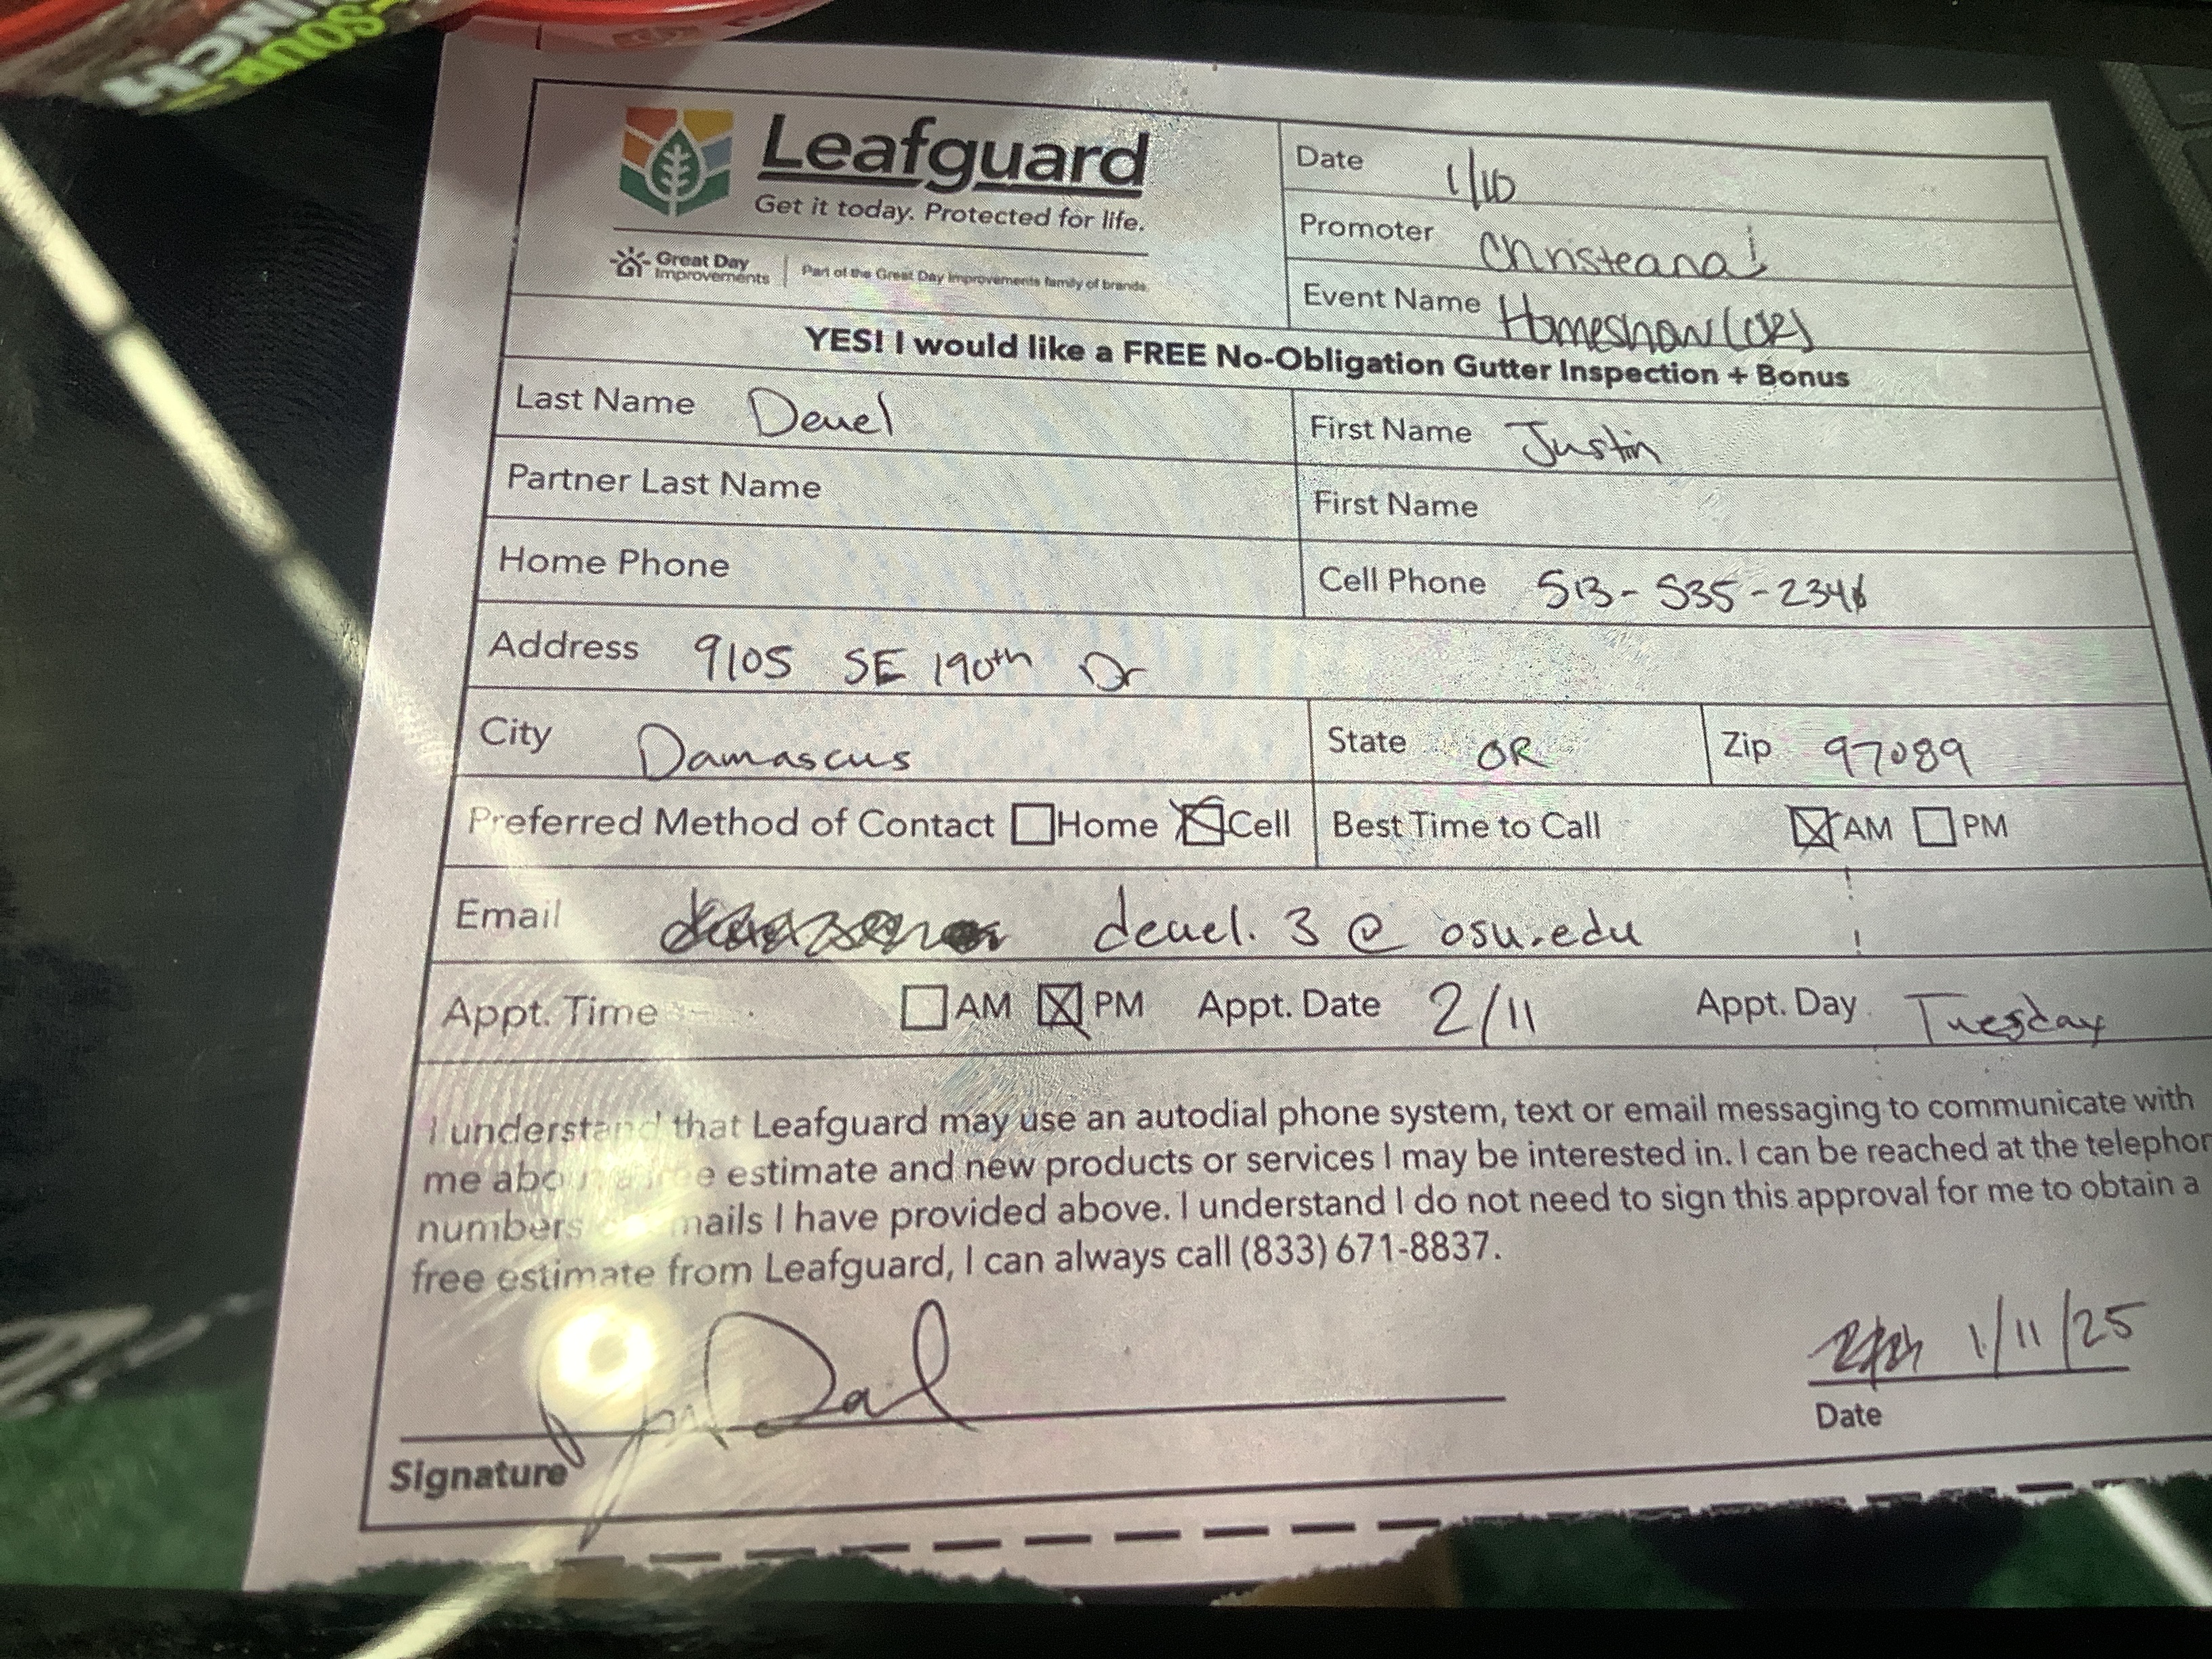 SOUR
Leafguard
Get it today. Protected for life.
Great Day
Improvements
Part of the Great Day Improvements family of brands.
Date 1/10
Promoter Christeana
Event Name Homeshow
YES! I would like a FREE No-Obligation Gutter Inspection + Bonus
Last Name Deuel First Name Justin
Partner Last Name First Name
Home Phone Cell Phone 513-535-234
Address 9105 SE 190th Dr
City Damascus State OR Zip 97089
Preferred Method of Contact Home Cell Best Time to Call AM PM
Email deuel.3@osu.edu
Appt. Time AM PM Appt. Date 2/11 Appt. Day Tuesday
I understand that Leafguard may use an autodial phone system, text or email messaging to communicate with
me about a free estimate and new products or services I may be interested in. I can be reached at the telephon
numbers mails I have provided above. I understand I do not need to sign this approval for me to obtain a
free estimate from Leafguard, I can always call (833) 671-8837.
1/11/25
Signature Date